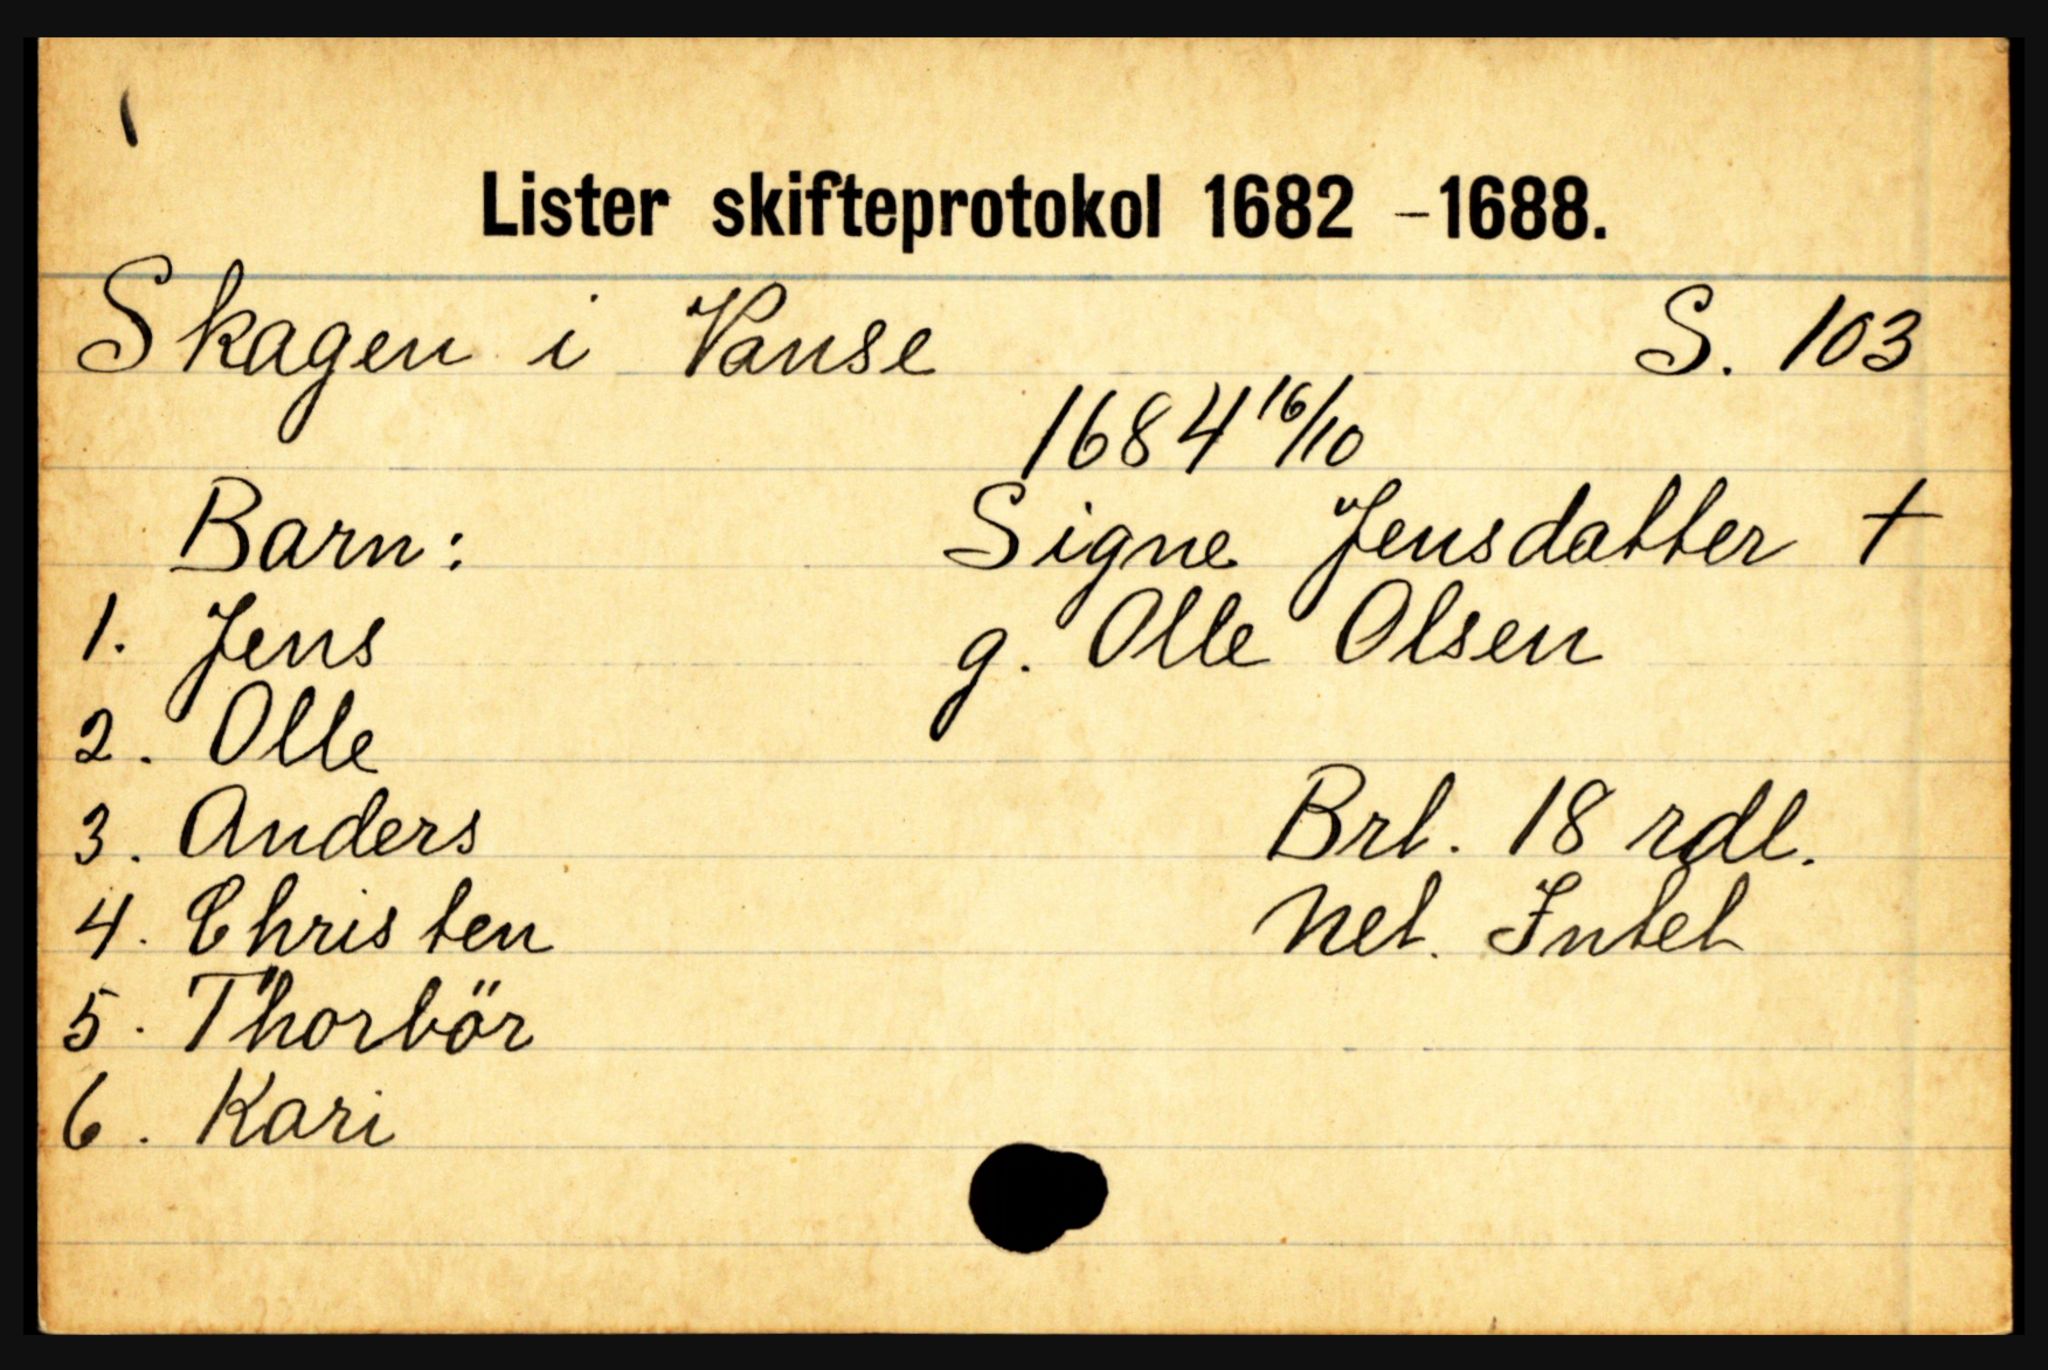 Lister skifteprotokol 1682 - 1688.
Skagen i Vanse S. 103
1684 16/10
Signe Jensdatter †
g. Olle Olsen
Barn:
1. Jens
2. Olle
3. Anders
4. Christen
5. Thorbör
6. Kari
Brt. 18 rdl.
Net. Intet